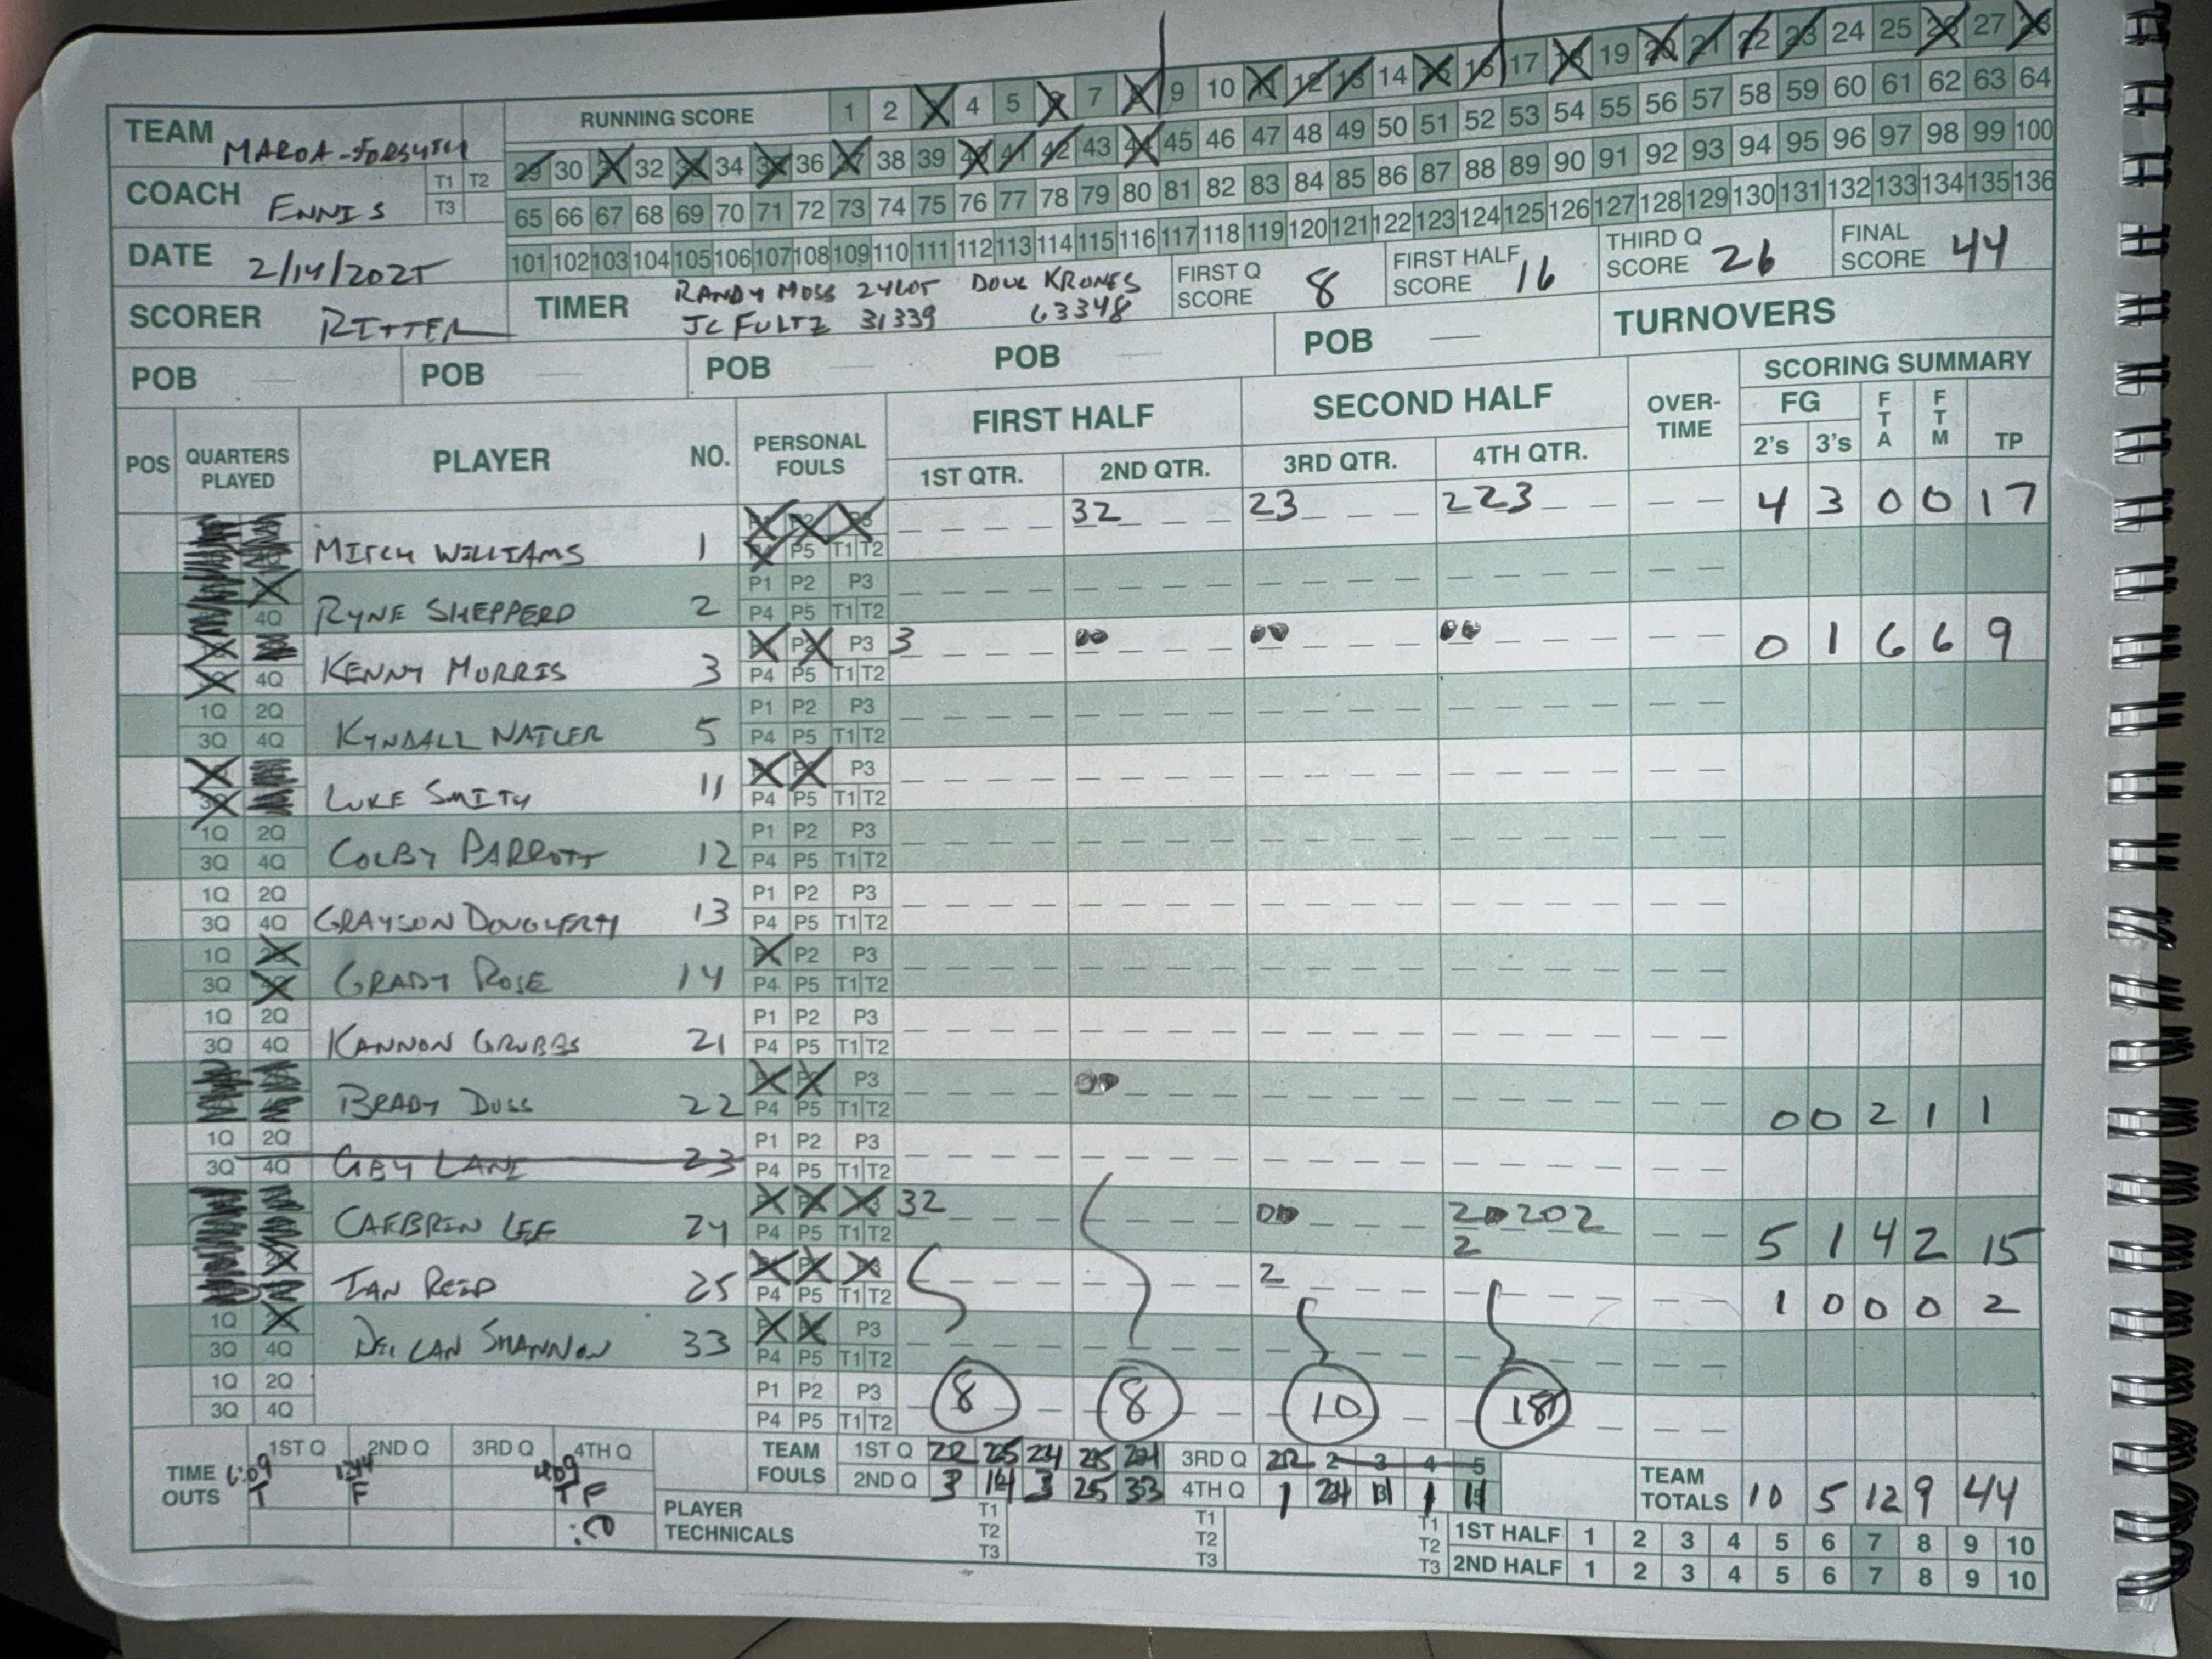 RUNNING SCORE 1 2 3 4 5 6 7 8 9 10 11 12 13 14 15 16 17 18 19 20 21 22 23 24 25 26 27 28
29 30 31 32 33 34 35 36 37 38 39 40 41 42 43 44 45 46 47 48 49 50 51 52 53 54 55 56 57 58 59 60 61 62 63 64
65 66 67 68 69 70 71 72 73 74 75 76 77 78 79 80 81 82 83 84 85 86 87 88 89 90 91 92 93 94 95 96 97 98 99 100
101 102 103 104 105 106 107 108 109 110 111 112 113 114 115 116 117 118 119 120 121 122 123 124 125 126 127 128 129 130 131 132 133 134 135 136
TEAM MAROA-FORSYTH
COACH ENNIS T1 T2 T3
DATE 2/14/2025
SCORER RITTER
TIMER RANDY MOSS 24205 DOUG KRONES
JC FULTZ 31339 63348
FIRST Q SCORE 8 FIRST HALF SCORE 16 THIRD Q SCORE 26 FINAL SCORE 44
POB — POB — POB — POB — POB — TURNOVERS
POS QUARTERS PLAYED PLAYER NO. PERSONAL FOULS FIRST HALF SECOND HALF OVER-TIME SCORING SUMMARY
1ST QTR. 2ND QTR. 3RD QTR. 4TH QTR. FG 2's 3's FTA FTM TP
MITCH WILLIAMS 1 P5 T1 T2 32 23 223 4 3 0 0 17
4Q RYNE SHEPPERD 2 P1 P2 P3 P4 P5 T1 T2
4Q KENNY MORRIS 3 P3 P4 P5 T1 T2 3 00 00 00 0 1 6 6 9
1Q 2Q 3Q 4Q KYNDALL NAILER 5 P1 P2 P3 P4 P5 T1 T2
LUKE SMITH 11 P3 P4 P5 T1 T2
1Q 2Q 3Q 4Q COLBY PARROTT 12 P1 P2 P3 P4 P5 T1 T2
1Q 2Q 3Q 4Q GRAYSON DOUGHERTY 13 P1 P2 P3 P4 P5 T1 T2
1Q 3Q GRADY ROSE 14 P2 P3 P4 P5 T1 T2
1Q 2Q 3Q 4Q KANNON GRUBBS 21 P1 P2 P3 P4 P5 T1 T2
BRADY DUSS 22 P3 P4 P5 T1 T2 00 0 0 2 1 1
1Q 2Q 3Q 4Q LANE 23 P1 P2 P3 P4 P5 T1 T2
CAEBRIN LEE 24 P4 P5 T1 T2 32 00 20202 2 5 1 4 2 15
IAN REID 25 P4 P5 T1 T2 2 1 0 0 0 2
1Q 3Q 4Q DECLAN SHANNON 33 P3 P4 P5 T1 T2
1Q 2Q 3Q 4Q P1 P2 P3 P4 P5 T1 T2 8 8 10 18
TIME OUTS 1ST Q 2ND Q 3RD Q 4TH Q
6:09 T 1:44 F 4:09 T F :50
TEAM FOULS 1ST Q 22 25 24 25 24 3RD Q 22 2 3 4 5
2ND Q 3 14 3 25 33 4TH Q 1 24 1 11
PLAYER TECHNICALS T1 T2 T3 T1 T2 T3 T1 T2 T3
TEAM TOTALS 10 5 12 9 44
1ST HALF 1 2 3 4 5 6 7 8 9 10
2ND HALF 1 2 3 4 5 6 7 8 9 10